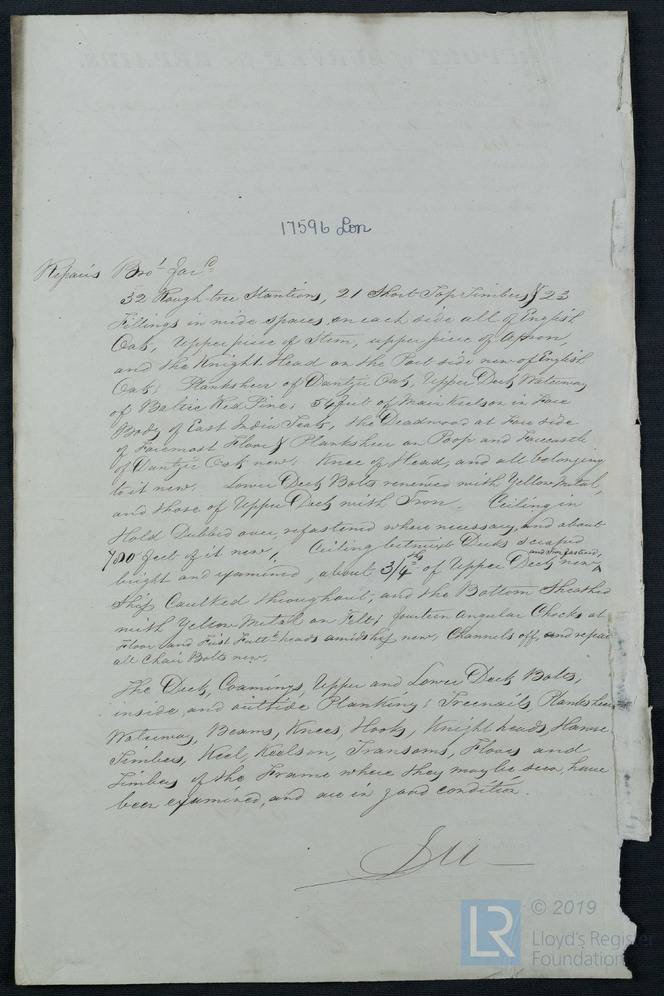 17596 Lon
Repairs Bro.t For.d
32 Rough-tree Stantions, 21 Short Top Timbers & 23
Fillings in wide spaces on each side all of English
Oak, Upper piece of Stem, upper piece of Apron,
and the Knight Head on the Port side new of English
Oak; Planksheer of Dantzic Oak, Upper Deck Waterway
of Baltic Red Pine; 54 feet of Main Keelson in Fore
Body of East India Teak, the Deadwood at Fore side
of Foremost Floor & Planksheer on Poop and Forecastle
of Dantzic Oak new. Knee of Head, and all belonging
to it new. Lower Deck Bolts renewed with Yellow Metal,
and those of Upper Deck with Iron. Ceiling in
Hold Dubbed over, refastened where necessary, and about
700 feet of it new, Ceiling betwixt Decks scraped
bright and examined, about 3/4ths of Upper Deck new and Iron fastend,
Ship Caulked throughout, and the Bottom Sheathed
with Yellow Metal on Felt; fourteen Angular Chocks at
Floor and First Futt.k heads amidship new, Channels off, and
all Chain Bolts new.
The Deck, Coamings, Upper and Lower Deck Bolts,
inside and outside Planking; Treenails, Planksheer
Waterway, Beams, Knees, Hooks, Knightheads, Hawse
Timbers, Keel, Keelson, Transoms, Floors and
Timbers of the Frame where they may be seen, have
been examined, and are in good condition.
LR
© 2019
Lloyd's Register
Foundation